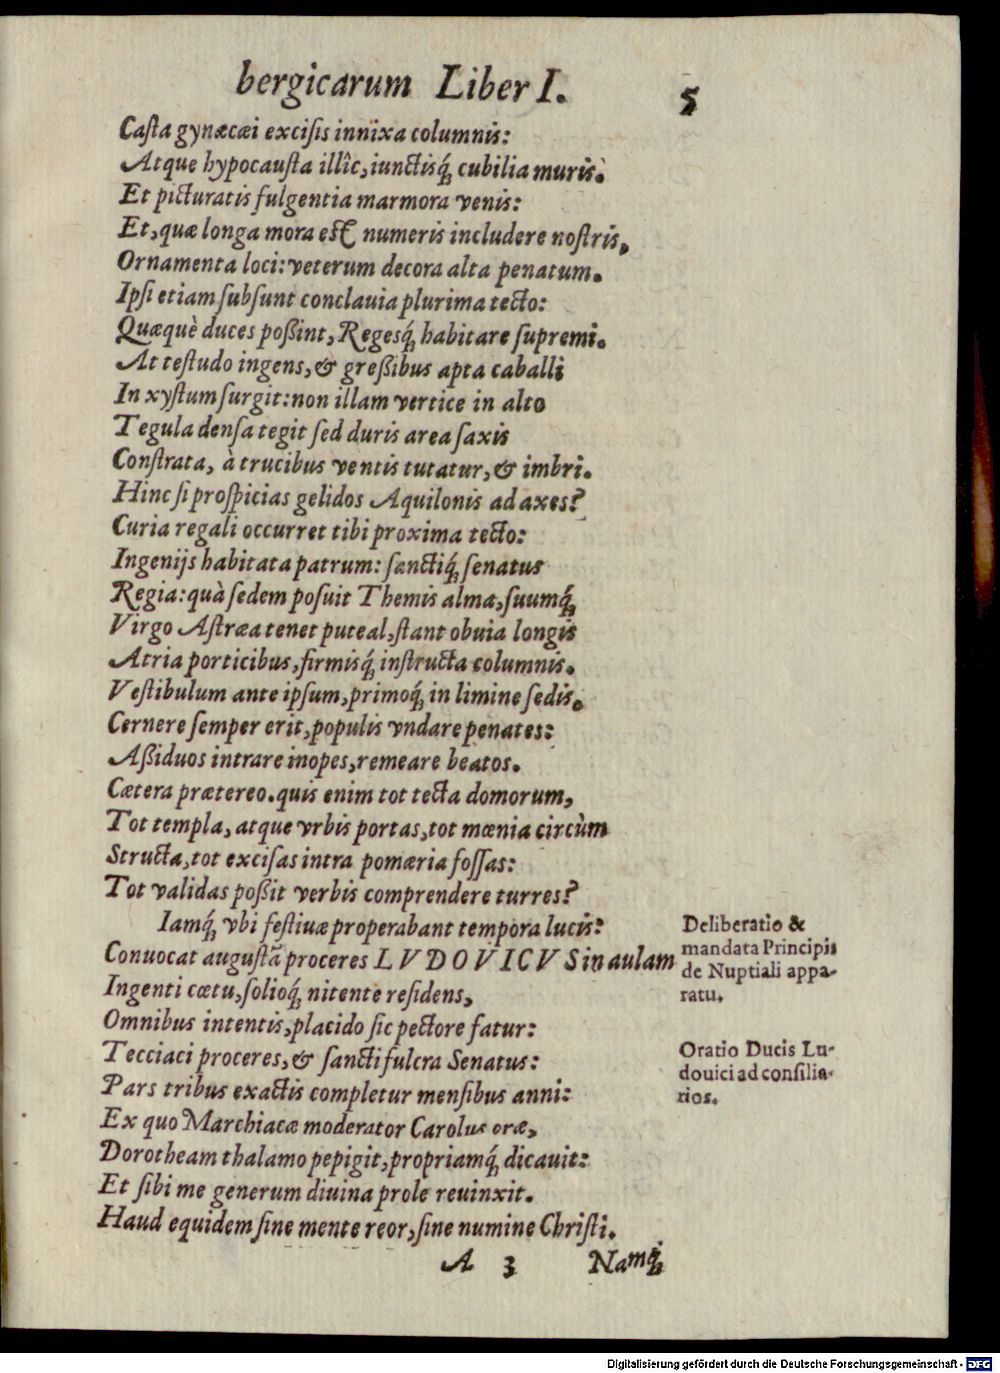 bergicarum Liber I. 5
Caſta gynæcæi exciſis innixa columnis:
Atque hypocauſta illîc, iunctisq́; cubilia muris.
Et picturatis fulgentia marmora venis:
Et, quæ longa mora eſt numeris includere noſtris,
Ornamenta loci: veterum decora alta penatum.
Ipſi etiam ſubſunt conclauia plurima tecto:
Quæquè duces poßint, Regesq́; habitare ſupremi.
At teſtudo ingens, & greßibus apta caballi
In xyſtum ſurgit: non illam vertice in alto
Tegula denſa tegit ſed duris area ſaxis
Conſtrata, à trucibus ventis tutatur, & imbri.
Hinc ſi proſpicias gelidos Aquilonis ad axes?
Curia regali occurret tibi proxima tecto:
Ingenijs habitata patrum: ſanctiq́; ſenatus
Regia: quà ſedem poſuit Themis alma, ſuumq́;
Virgo Aſtræa tenet puteal, ſtant obuia longis
Atria porticibus, firmisq́; inſtructa columnis.
Veſtibulum ante ipſum, primoq́; in limine ſedis.
Cernere ſemper erit, populis vndare penates:
Aßiduos intrare inopes, remeare beatos.
Cætera prætereo. quis enim tot tecta domorum,
Tot templa, atque vrbis portas, tot mœnia circùm
Structa, tot exciſas intra pomæria foſſas:
Tot validas poßit verbis comprendere turres?
Iamq́; vbi feſtiuæ properabant tempora lucis:
Conuocat auguſtā proceres LVDOVICVS in aulam
Ingenti cœtu, ſolioq́; nitente reſidens,
Omnibus intentis, placido ſic pectore fatur:
Tecciaci proceres, & ſancti fulcra Senatus:
Pars tribus exactis completur menſibus anni:
Ex quo Marchiacæ moderator Carolus oræ,
Dorotheam thalamo pepigit, propriamq́; dicauit:
Et ſibi me generum diuina prole reuinxit.
Haud equidem ſine mente reor, ſine numine Chriſti.
A 3 Namq́;
Deliberatio &
mandata Principis
de Nuptiali appa-
ratu.
Oratio Ducis Lu-
douici ad conſilia-
rios.
Digitalisierung gefördert durch die Deutsche Forschungsgemeinschaft - DFG